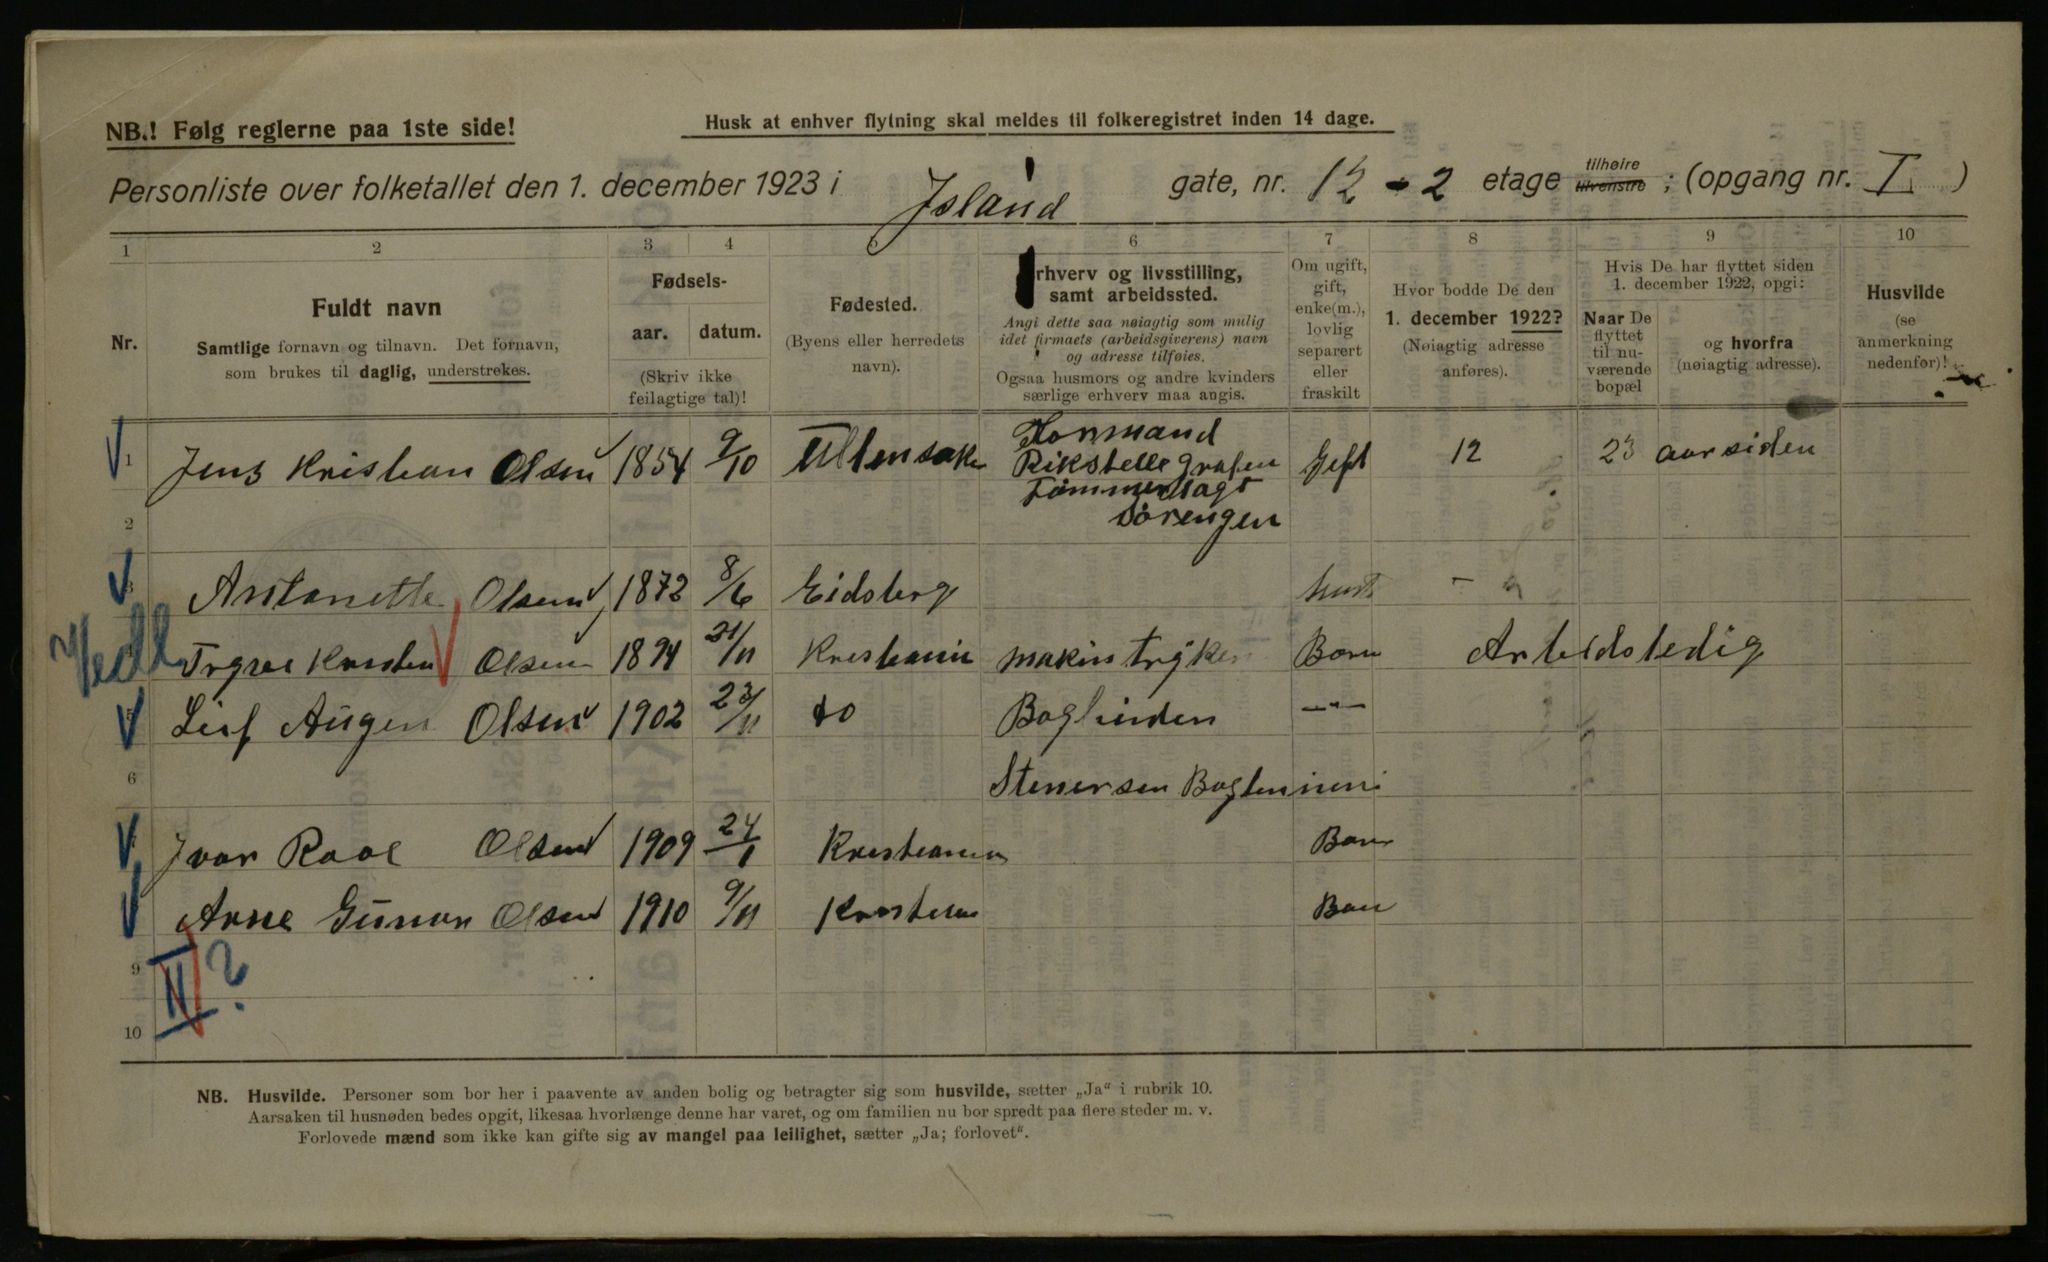 NB.! Følg reglerne paa 1ste side!
Husk at enhver flytning skal meldes til folkeregistret inden 14 dage.
Personliste over folketallet den 1. december 1923 i Island gate, nr. 12 - 2 etage tilhøire tilvenstre ; (opgang nr. I )
1 2 3 4 5 6 7 8 9 10
Nr.
Fuldt navn
Samtlige fornavn og tilnavn. Det fornavn,
som brukes til daglig, understrekes.
Fødsels-
aar. datum.
(Skriv ikke
feilagtige tal)!
Fødested.
(Byens eller herredets
navn).
rhverv og livsstilling,
samt arbeidssted.
Angi dette saa nøiagtig som mulig
idet firmaets (arbeidsgiverens) navn
og adresse tilføies.
Ogsaa husmors og andre kvinders
særlige erhverv maa angis.
Om ugift,
gift,
enke(m.),
lovlig
separert
eller
fraskilt
Hvor bodde De den
1. december 1922?
(Nøiagtig adresse
anføres).
Hvis De har flyttet siden
1. december 1922, opgi:
Naar De
flyttet
til nu-
værende
bopæl
og hvorfra
(nøiagtig adresse).
Husvilde
(se
anmerkning
nedenfor)!
1 Jens Kristian Olsen 1854 9/10 Ullensaker Formand Gift 12 23 aar siden
Rikstellegrafen
Tømmerlagt
2 Sørengen
3 Antonette Olsen 1872 8/6 Eidsberg
4 Trygve Kristen Olsen 1894 21/11 Kristiania makintryker Barn Arbeidsledig
5 Leif Augen Olsen 1902 23/11 do Bogbinden -"-
6 Stenersen
Ivar Roal Olsen 1909 24/1 Kristiania Barn
Arne Gunnar Olsen 1910 9/11 Kristiania Barn
9
II ?
10
NB. Husvilde. Personer som bor her i paavente av anden bolig og betragter sig som husvilde, sætter „Ja“ i rubrik 10.
Aarsaken til husnøden bedes opgit, likesaa hvorlænge denne har varet, og om familien nu bor spredt paa flere steder m. v.
Forlovede mænd som ikke kan gifte sig av mangel paa leilighet, sætter „Ja; forlovet“.